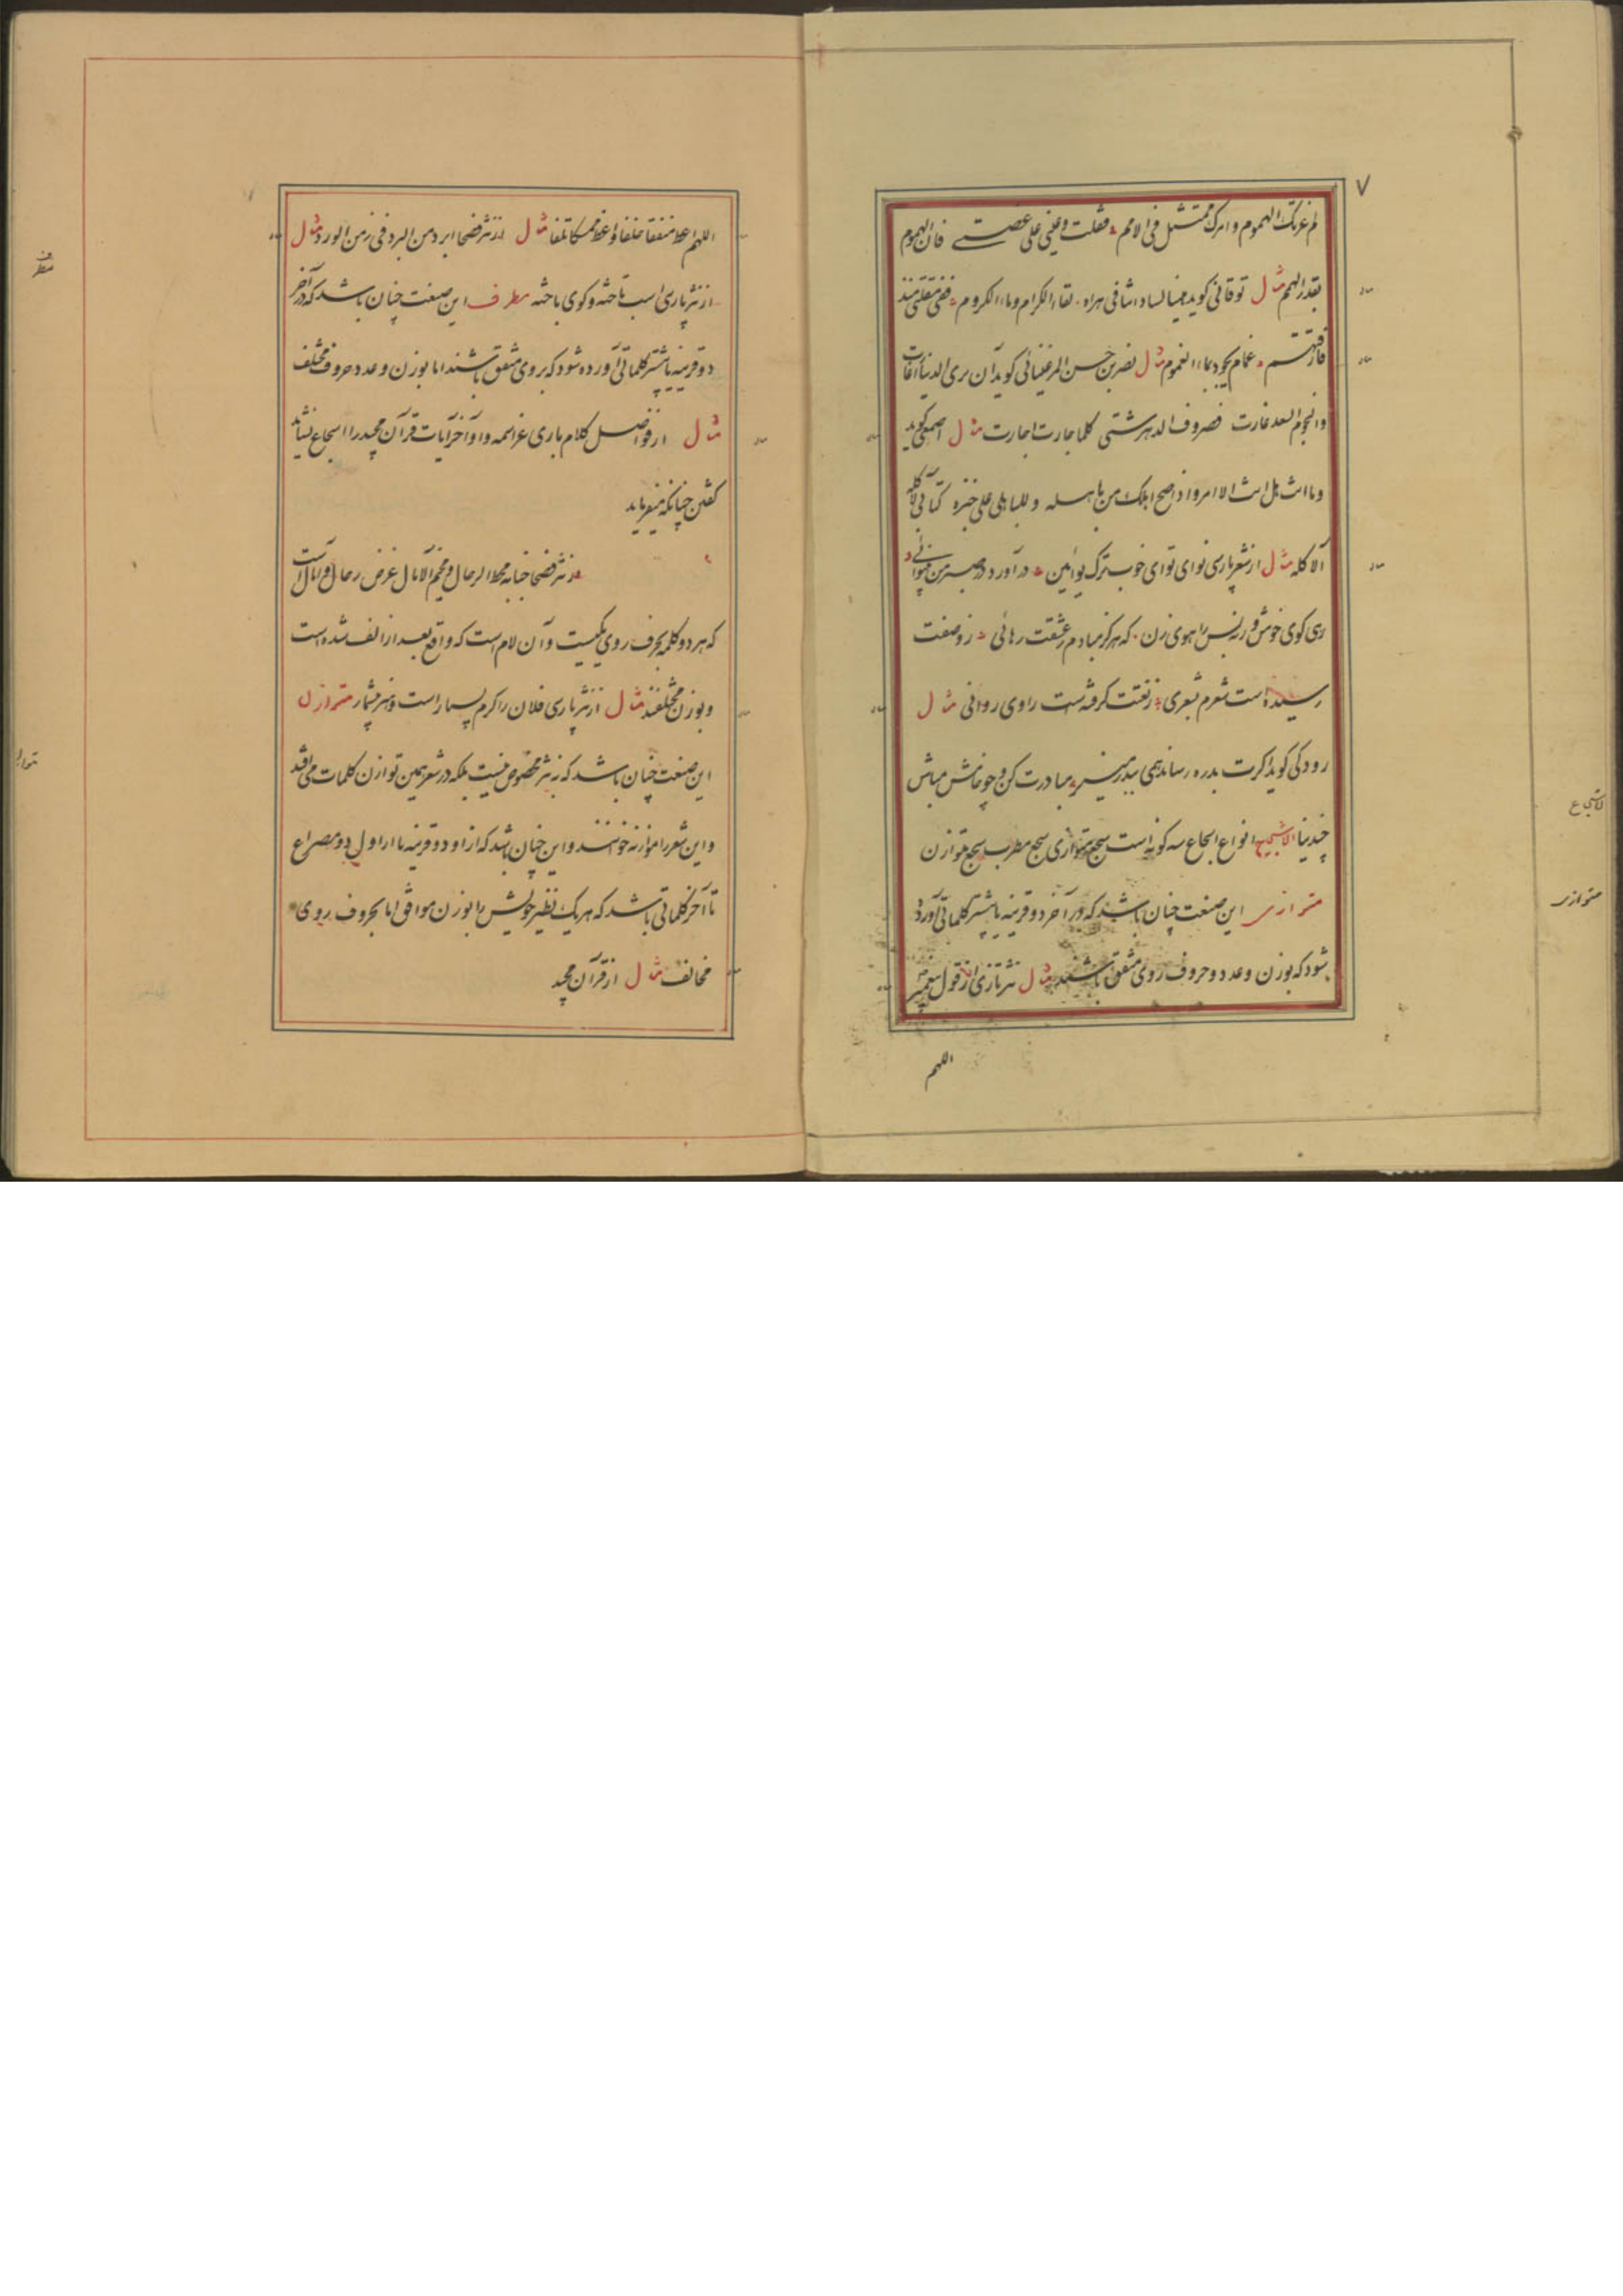 ۷
لم غرتک الهموم و امرک ممتثل فی الامم فقلت دعینی علی غصتی فان الهموم
بقدر الهمم مثال توقانی کوید لساداتنا فی هراه لقاء الکرام و ماء الکروم ففی مقلتی منذ
فارقتهم غمام یجود بماء الغموم مثال نصر بن حسن المرغینانی کوید ان تری الدنیا اغارت
و النجوم السعد غارت فصروف الدهر شتی کلما جارت اجارت مثال اصمعی کوید
و ما انت هل انت الا امرو اذا صح اهلک من باهله و للباهلی علی خبزه کتاب لاکله
الآکله مثال از شعر پارسی نوای توای خوب ترک نوآیین درآورد در صبر من بینوائی
رهی کوی خوش ورنه بس راهوی زن که هرکز مبادم ز عشقت رهائی ز وصفت
رسیده است شعرم بشعری ز نعتت کرفته است راوی روانی مثال
رودکی کوید اکرت بدره رساند همی ببدر منیر مبادرت کن و چو خامش مباش
چندینا الاسجاع انواع اسجاع سه کونه است سجع متوازی سجع مطرف سجع متوازن
متوازی این صنعت چنان باشد که در آخر دو قرینه یا بیشتر کلماتی آورده
شود که بوزن و عدد و حروف روی متفق باشند مثال نثر تازی از قول پیغمبر
اللهم
الاسجاع
متوازی
اللهم اعط منفقا خلفا و اعط ممسکا تلفا مثال از نثر فصحا ابرد من البرد فی زمن الورد مثال
از نثر پارسی اسب تاخته و کوی باخته مطرف این صنعت چنان باشد که در آخر
دو قرینه یا بیشتر کلماتی آورده شود که بروی متفق باشند اما بوزن و عدد حروف مختلف
مثال از فواصل کلام باری عز اسمه و اواخر آیات قرآن مجید را اسجاع نشاید
کفتن چنانکه میفرماید
از نثر فصحا جنابه محط الرحال و مخیم الآمال غرض رحال و آمال است
که هر دو کلمه بحرف روی یکیست و آن لام است که واقع بعد از الف شده است
و بوزن مختلفند مثال از نثر پارسی فلان را کرم بسیار است و هنر بیشمار متوازن
این صنعت چنان باشد که به نثر مخصوص نیست بلکه در شعر همین توازن کلمات می افتد
و این شعر را موازنه خوانند و این چنان باشد که از او دو قرینه یا از اول دو مصراع
تا آخر کلماتی باشد که هر یک نظیر خویش را بوزن موافق اما بحروف روی
مخالف مثال از قرآن مجید
مطرف